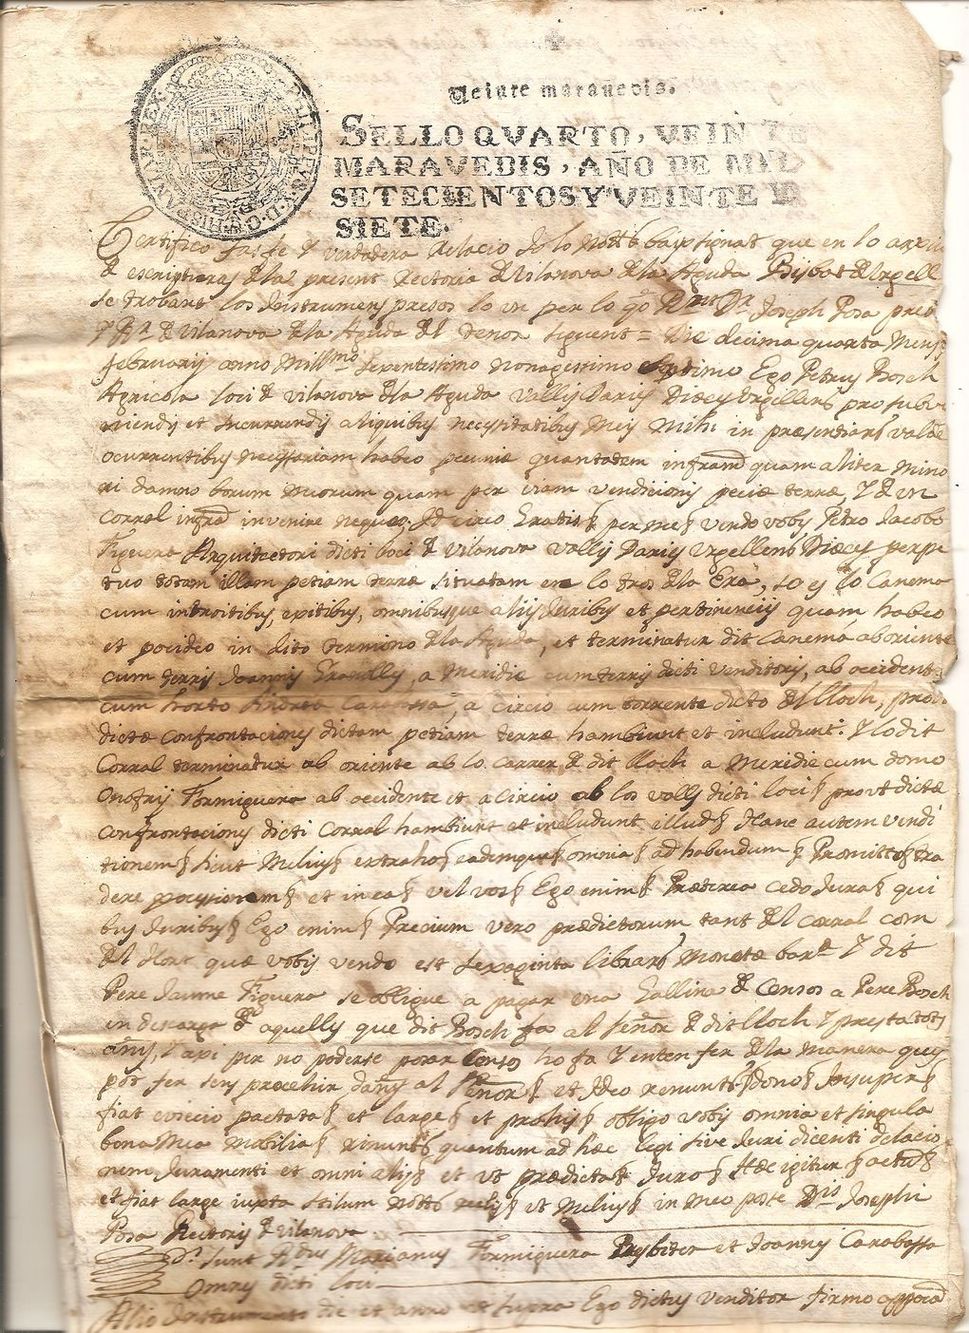 PHILIPPVS V D G HISPANIAR REX
Veinte maravedis.
SELLO QVARTO, VEINTE
MARAVEDIS, AÑO DE MIL
SETECIENTOS Y VEINTE Y
SIETE.
Certifico fas fe y verdadera Relacio Jo lo Nott baix signat que en lo arxiu
de escripturas de la present Rectoria de Vilanova de la Aguda Bisbat de Urgell
se troban los Instruments presos lo un per lo qo Rnt Dr Joseph Posa pre
y Rr de Vilanova de la Aguda del tenor seguent = Die decima quarta Mensis
februarii anno Millmo sexentesimo nonagessimo septimo Ego Petrus Bosch
Agricola loci de vilanova de la Aguda Vallis Dariis Diocis Urgellens pro subve
niendis et incurrendis aliquibus necessitatibus Meis Mihi in præsentiars valde
ocurrentibus necessariam habeo pecuniæ quantatem infram quam aliter mino
ri damno bonorum meorum quam per viam vendicionis peciæ terræ, Y de un
corral infram invenire nequeo Id circo Gratis § per me § vendo vobis Petro Jacobo
Figuera Arquitactori dicti loci de vilanova vallis Dariis Urgellens Diocis perpe
tuo totam illam petiam terræ situatam en lo tros de la Era, so es lo Canemá
cum introitibus, exitibus, omnibusque aliis Juribus et pertinenciis quam habeo
et pocideo in dito termino de la Aguda, et terminatur dit Canemá ab oriente
cum terris Joannis, a Meridie cum terris dicti venditoris, ab occident
cum horto Andrea Carabassa, a circio cum torrente dicto del Lloch, prout
dictæ confrontacions dictam petiam terræ hambiunt et includunt. Y lo dit
Corral terminatur ab oriente ab lo Carrer de dit lloch a Meridie cum domo
Onofrij Formiguera ab occidente et a circio ab los valls dicti loci § prout dictæ
confrontacions dicti corral hambiunt et includunt illud § Hanc autem vendi
tionem § sicut Melius § extraho § eademque § omnia § ad habendum § Promitto § tra
dere possessionem § et in ea § vel vos § Ego enim § Præterea cedo Jura § qui
bus Juribus § Ego enim § Precium vero prædictorum tant del corral com
del Hort quæ vobis vendo est sexaginta librars Monetæ bare Y dit
Pere Jaume Figuera se oblige a pagar una Gallina de Censos a Pere Bosch
in descarga de aquells que dit Bosch fa al señor de dit lloch Y presta tots
anys, Y axi per no poderse posar Censo ho fa Y enten fer de la manera que
pot fer sens precehir dany al Señor § et Ideo renunts § dono § Insuper §
fiat eviccio pactata § et large § et prohis § obligo vobis omnia et singula
bona Mea mobilia § renunts § quantum ad hæc legi sive Juri dicenti delacio
nem Juramenti et omni aliis § et ut prædicta § Juro § Hæc igitur § actum §
et fiat large iuxta stilum Notts § ut Melius § in meo posse Dris Josephi
Posa Rectoris de vilanova
Ts. sunt Rdus Marianus Formiguera Presbiter et Joannes Carabassa
Omnes dicti loci
Alio Instrumento die et anno ut supra Ego dictus venditor firmo apocam